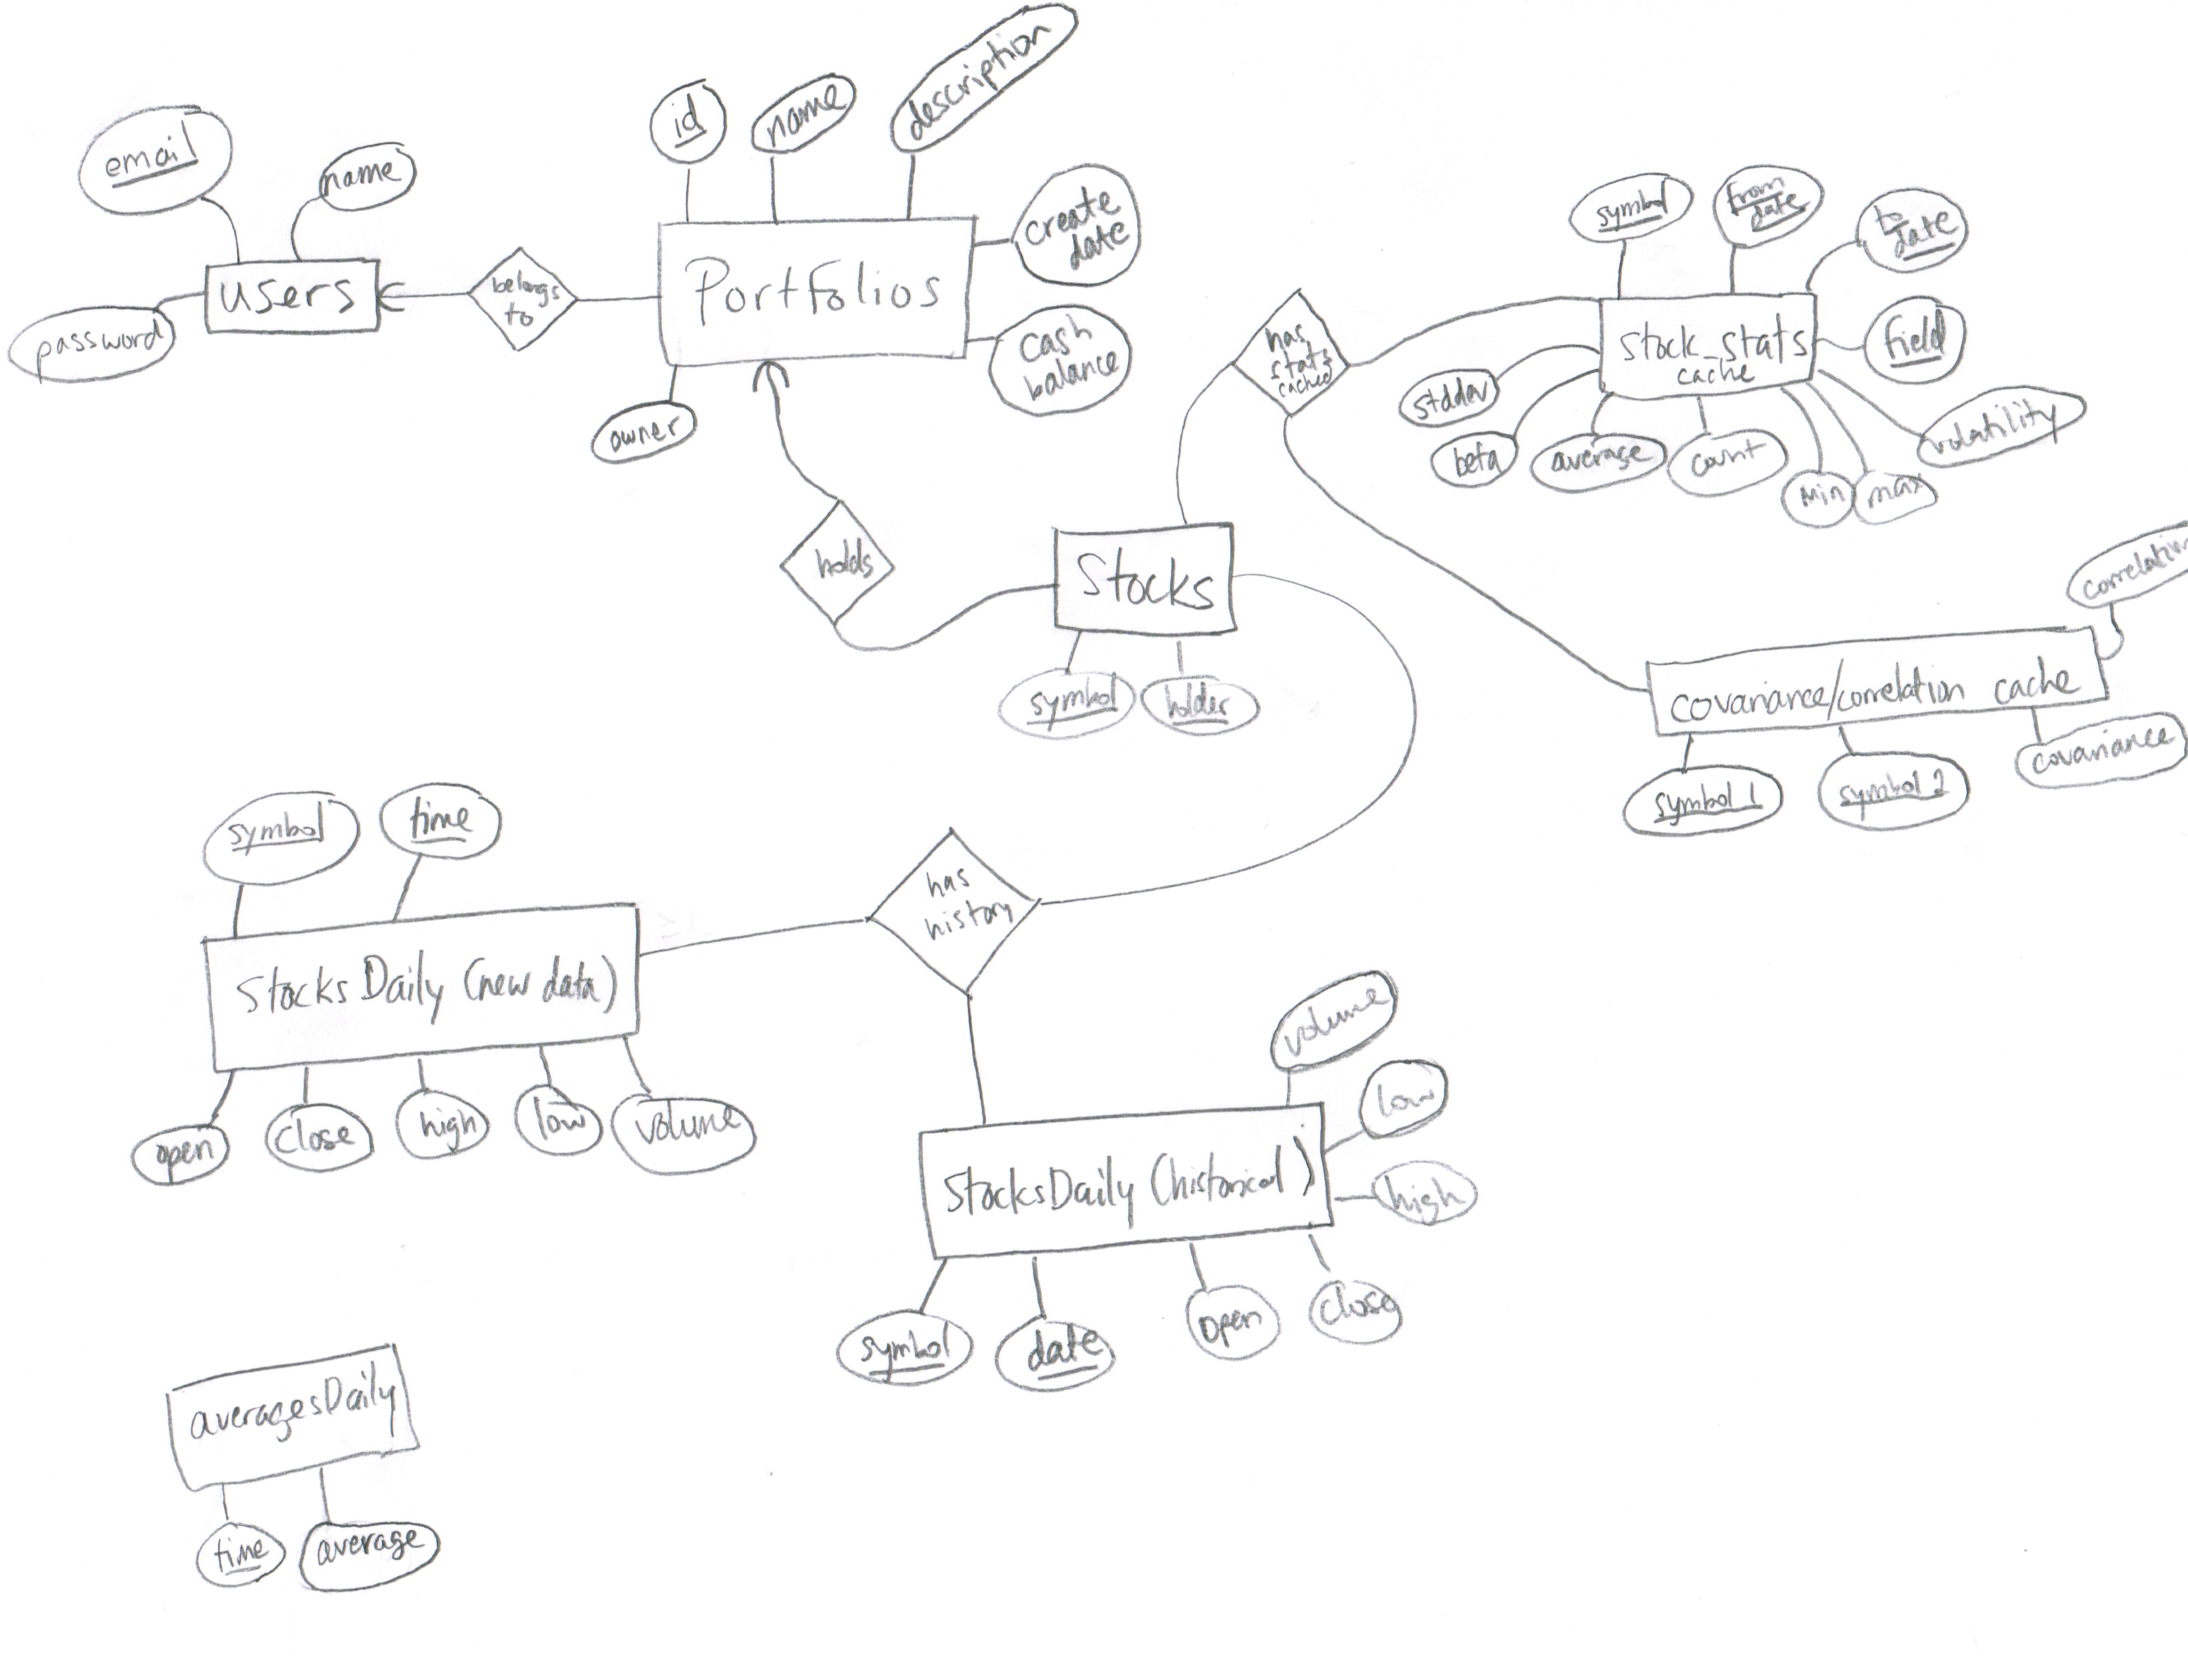 email
name
password
users
belongs
to
id
name
description
create
date
cash
balance
Portfolios
owner
holds
has
stats
cached
symbol
from
date
to
date
field
stock_stats
cache
stddev
beta
average
count
min
max
volatility
Stocks
symbol
holder
covariance/correlation cache
symbol 1
symbol 2
covariance
symbol
time
Stocks Daily (new data)
open
close
high
low
volume
has
history
volume
low
high
StocksDaily (historical)
symbol
date
open
close
averagesDaily
time
average